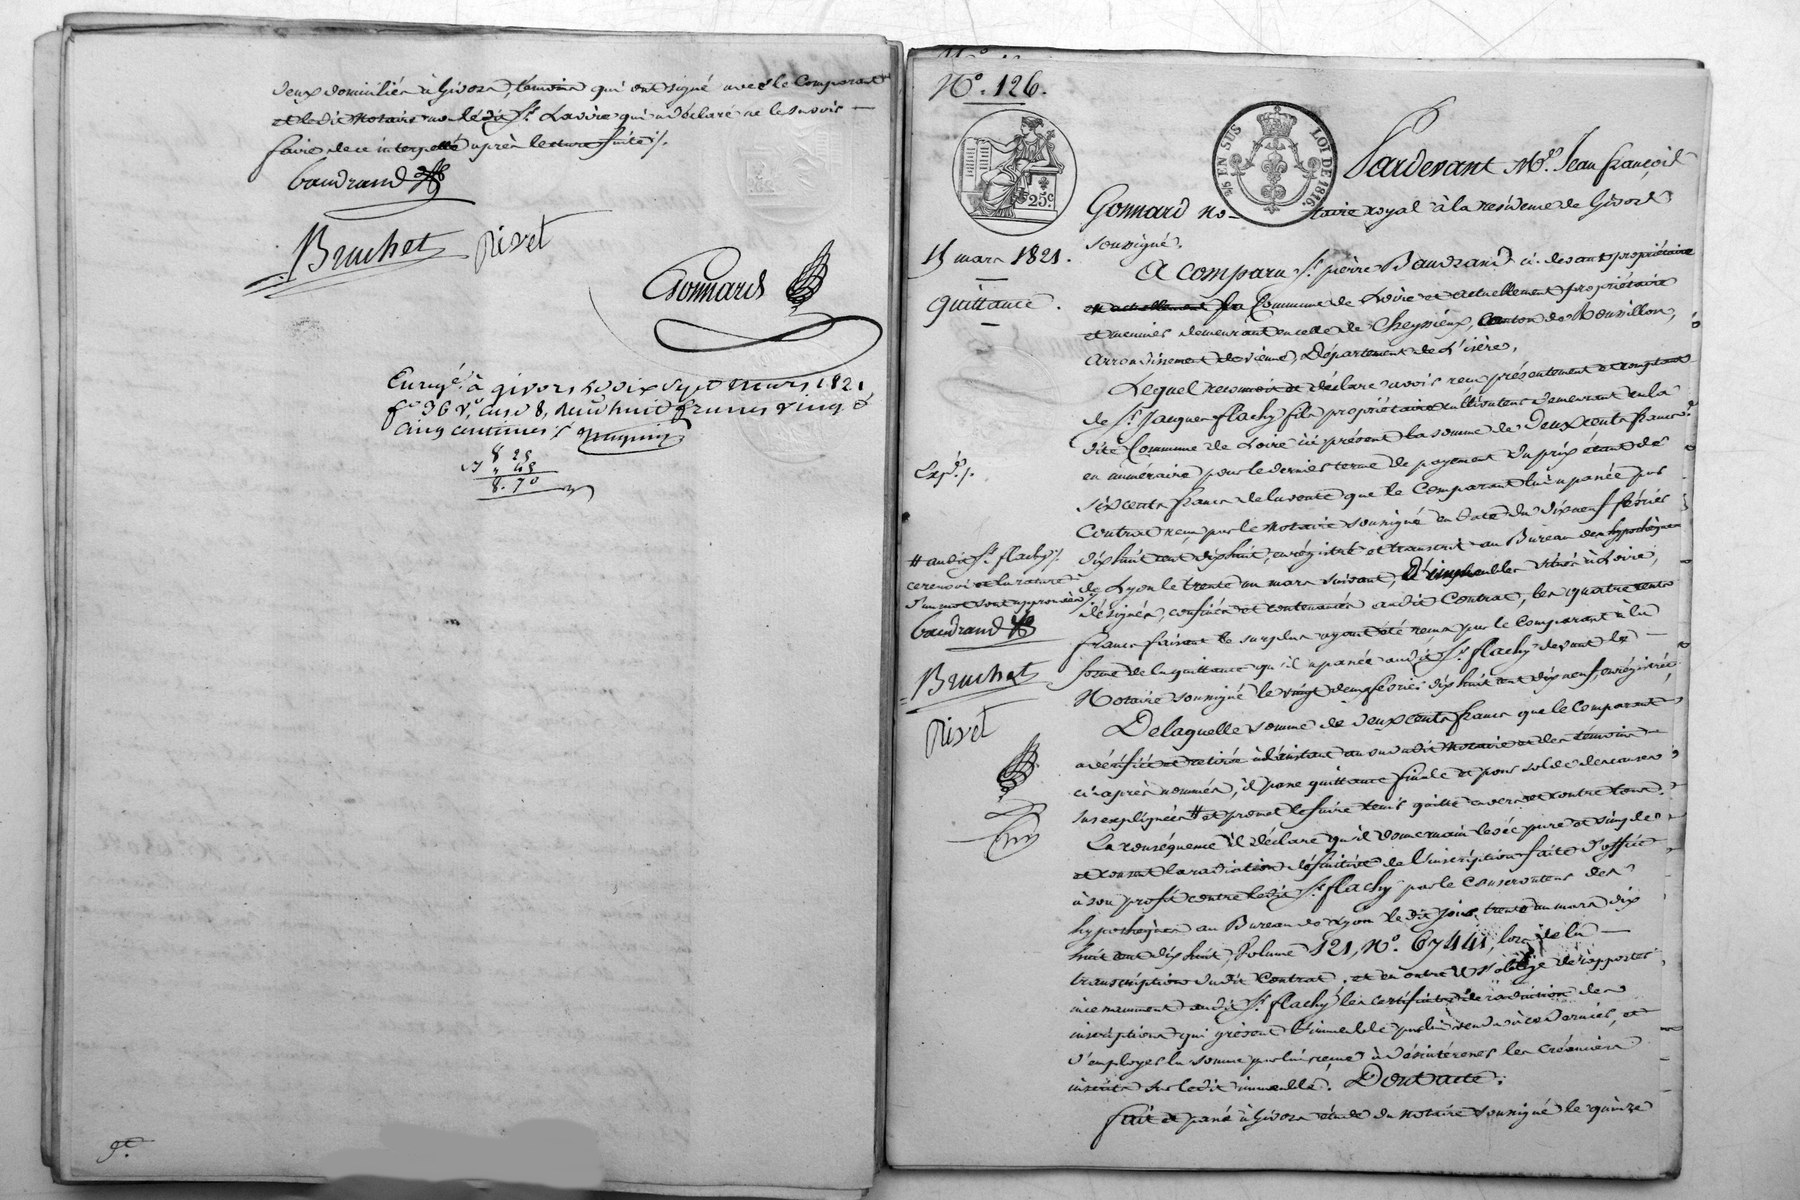 deux domiciliés à Givors, témoins qui ont signé avec le Comparant
et le dit Notaire non ledit Sr. Lavire qui a déclaré ne le savoir
faire de ce interpellé après lecture faite ./.
baudrand
Bruchet Rivet
Gonnard
Enregé. à givors le dix Sept mars 1821
fo 36 vo. case 8, reçu huit francs vingt
cinq centimes
8 25
" 45
8. 70
No. 126.
25c
45 EN SUS LOI DE 1816.
Pardevant Me. Jean françois
Gonnard notaire royal à la résidence de Givors
soussigné.
15 mars 1821.
Quittance.
A comparu Sr. pierre Baudrand ci-devant propriétaire
Commune de Loire et actuellement propriétaire
et meunier demeurant en celle de Cheyssieux, Canton de Rousillon,
arrondissement de vienne, Département de L'isère,
Lequel reconnoit et déclare avoir reçu présentement et comptant
de Sr. Jacques flachy fils propriétaire cultivateur demeurant en la
dite Commune de Loire ici présent la somme de Deux cents francs
en numéraire pour le dernier terme de payement du prix étant de
Expn. ./.
six cents francs de la vente que le Comparant lui a passée par
Contrat reçu par le Notaire soussigné en date du dix neuf février
dix huit cent dix huit, enregistré et transcrit au Bureau des hypothèques
de Lyon le trente un mars suivant, D'immeubles situés à Loire,
désignés, confinés et contenancés audit Contrat, les quatre cents
francs faisant le surplus ayant été reçus par le Comparant à la
forme de la quittance qu'il a passée audit Sr. flachy devant le
Notaire soussigné le vingt deux février dix huit cent dix neuf, enregistrée,
# audit Sr. flachy ./.
ce renvoi et la rature
d'un mot sont approuvés ./.
baudrand
Bruchet
Rivet
Delaquelle somme de deux cents francs que le Comparant
a vérifiée et retirée à l'instant au vu dudit Notaire et des temoins
ci-après nommés, il passe quittance finale et pour solde des causes
sus expliquées # et promet le faire tenir quitte envers et contre tous.
En conséquence il déclare qu'il donne main levée pure et simple
et consent la radiation définitive de l'inscription faite d'office
à son profit contre ledit Sr. flachy par le Conservateur des
hypothèques au Bureau de Lyon le dit jour trente un mars dix
huit cent dix huit, Volume 121, No. 67441, lors de la
transcription dudit Contrat, et en outre il s'oblige de rapporter
incessamment audit Sr. flachy les certificats de radiation des
inscriptions qui grèvent l'immeuble par lui vendu à ce dernier, et
d'employer la somme par lui reçue à désintéresser les Créanciers
inscrits sur ledit immeuble. Dont acte.
fait et passé à Givors étude du notaire soussigné le quinze